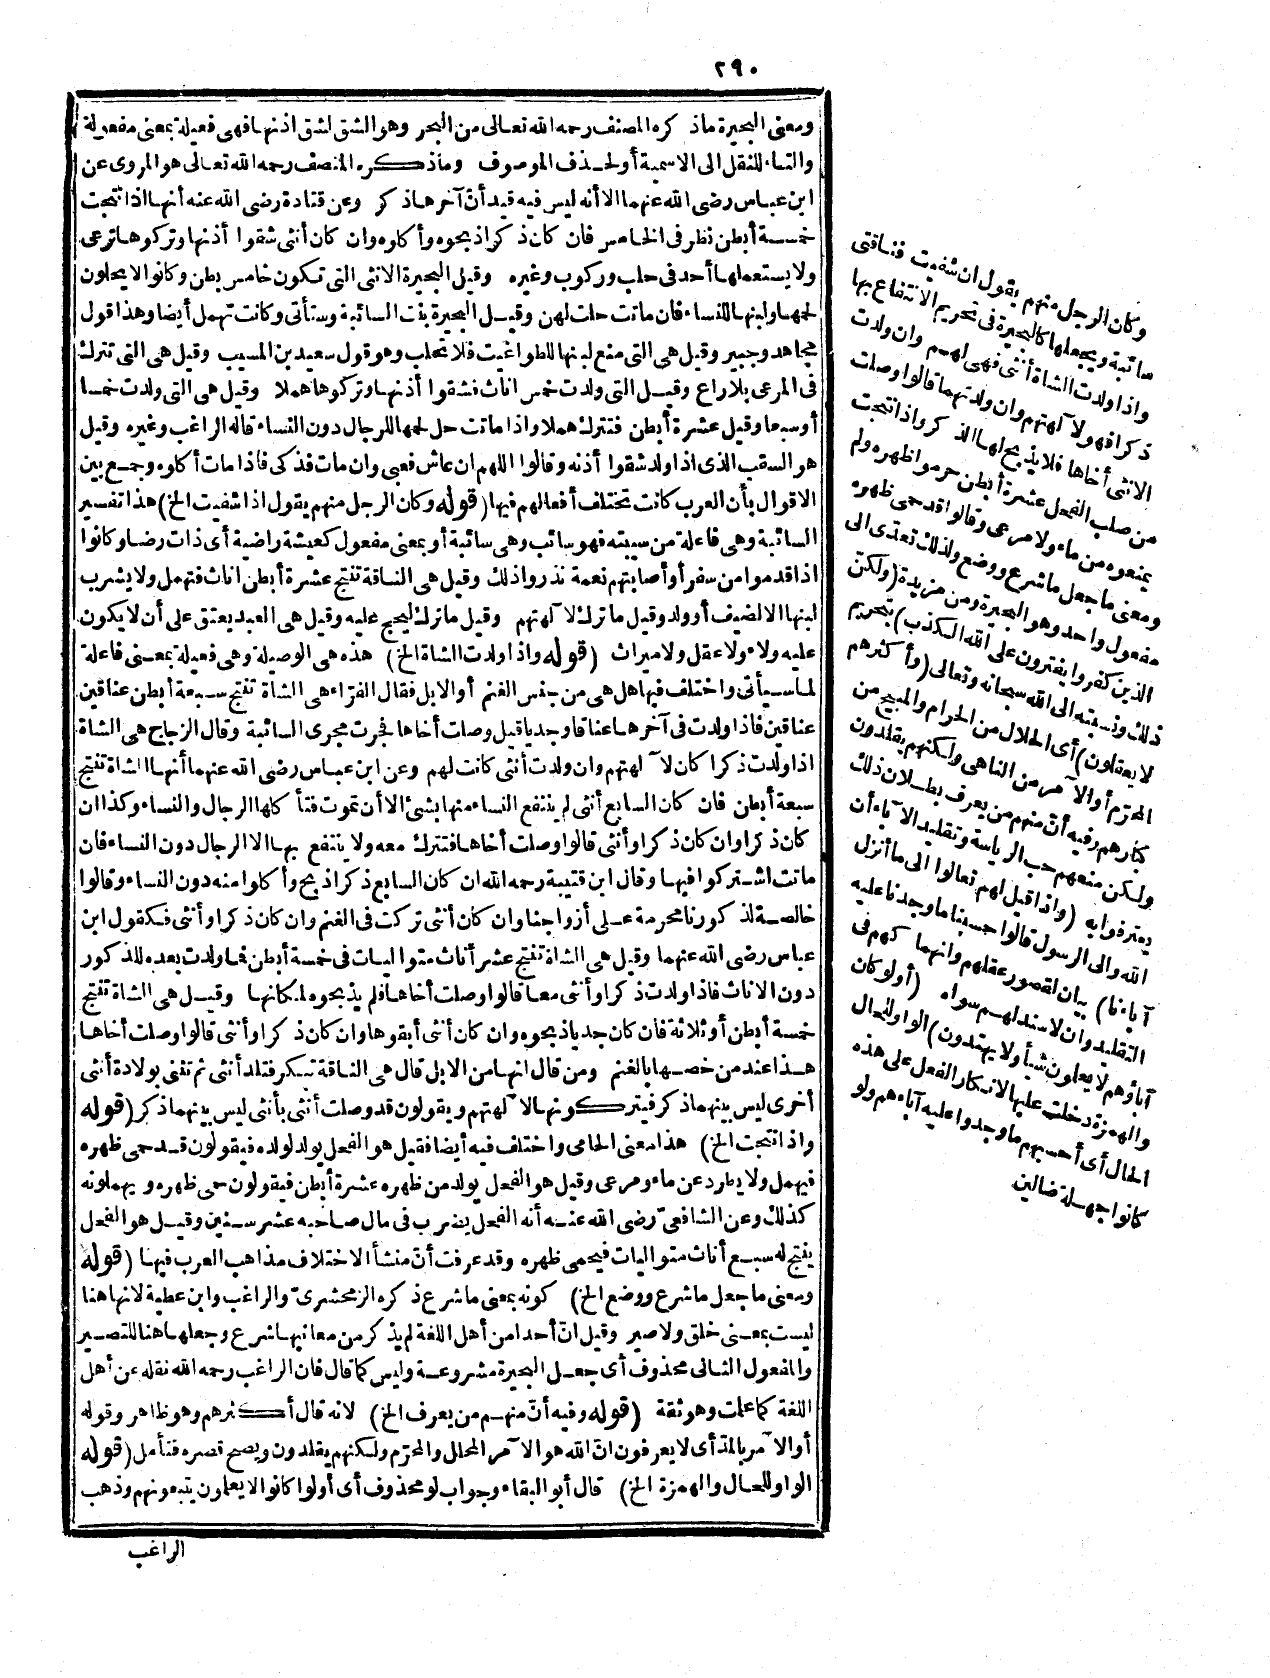 ٢٩٠
ومعنى البحيرة ماذ كره المصنف رحمه الله تعالى من البحر وهو الشق لشق اذنها فهى فعيلة بمعنى مفعولة
والتاء للنقل الى الاسمية أو لحذف الموصوف وماذكره المنصف رحمه الله تعالى هو المروى عن
ابن عباس رضى الله عنهما الا أنه ليس فيه قيد أن آخرها ذكر وعن قتادة رضى الله عنه أنها اذا نتجت
خمسة أبطن نظر فى الخامس فان كان ذكرا ذبحوه وأكلوه وان كان أنثى شقوا أذنها وتركوها ترعى
ولا يستعملها أحد فى حلب وركوب وغيره وقيل البحيرة الانثى التى تكون خامس بطن وكانوا لا يحلون
لحمها ولبنها للنساء فان ماتت حلت لهن وقيل البحيرة بنت السائبة وستأتى وكانت تهمل أيضا وهذا قول
مجاهد وجبير وقيل هى التى منع لبنها للطواغيت فلا تحلب وهو قول سعيد بن المسيب وقيل هى التى تترك
فى المرعى بلا راع وقيل التى ولدت خمس اناث فشقوا أذنها وتركوها هملا وقيل هى التى ولدت خمسا
أوسبعا وقيل عشرة أبطن فتترك هملا واذا ماتت حل لحمها للرجال دون النساء قاله الراغب وغيره وقيل
هو السقب الذى اذا ولد شقوا أذنه وقالوا اللهم ان عاش فعبى وان مات فذكى فاذا مات أكلوه وجمع بين
الاقوال بأن العرب كانت تختلف أفعالهم فيها (قوله وكان الرجل منهم يقول اذا شفيت الخ) هذا تفسير
السائبة وهى فاعلة من سيبته فهو سائب وهى سائبة أو بمعنى مفعول كعيشة راضية أى ذات رضا وكانوا
اذا قدموا من سفر أو أصابتهم نعمة نذروا ذلك وقيل هى الناقة تنتج عشرة أبطن اناث فتهمل ولا يشرب
لبنها الا لضيف أو ولد وقيل ماترك لآلهتهم وقيل ماترك ليحج عليه وقيل هى العبد يعتق على أن لا يكون
عليه ولاء ولا عقل ولا ميراث (قوله واذا ولدت الشاة الخ) هذه هى الوصيلة وهى فعيلة بمعنى فاعلة
لما سيأتى واختلف فيها هل هى من جنس الغنم أو الابل فقال الفراء هى الشاة تنتج سبعة أبطن عناقين
عناقين فاذا ولدت فى آخرها عناقا وجديا قيل وصلت أخاها فجرت مجرى السائبة وقال الزجاج هى الشاة
اذا ولدت ذكرا كان لآلهتهم وان ولدت أنثى كانت لهم وعن ابن عباس رضى الله عنهما أنها الشاة تنتج
سبعة أبطن فان كان السابع أنثى لم ينتفع النساء منها بشئ الا أن تموت فتأكلها الرجال والنساء وكذا ان
كان ذكرا وان كان ذكرا وأنثى قالوا وصلت أخاها فتترك معه ولا ينتفع بها الا الرجال دون النساء فان
ماتت اشتركوا فيها وقال ابن قتيبة رحمه الله ان كان السابع ذكرا ذبح وأكلوا منه دون النساء وقالوا
خالصة لذكورنا محرمة على أزواجنا وان كان أنثى تركت فى الغنم وان كان ذكرا وأنثى فكقول ابن
عباس رضى الله عنهما وقيل هى الشاة تنتج عشر أناث متواليات فى خمسة أبطن فما ولدت بعده للذكور
دون الاناث فاذا ولدت ذكرا وأنثى معا قالوا وصلت أخاها فلم يذبحوه لمكانها وقيل هى الشاة تنتج
خمسة أبطن أو ثلاثة فان كان جديا ذبحوه وان كان أنثى أبقوها وان كان ذكرا وأنثى قالوا وصلت أخاها
هذا عند من خصها بالغنم ومن قال انها من الابل قال هى الناقة تبكر فتلد أنثى ثم تثنى بولادة أنثى
أخرى ليس بينهما ذكر فيتركونها لآلهتهم ويقولون قد وصلت أنثى بأنثى ليس بينهما ذكر (قوله
واذا نتجت الخ) هذا معنى الحامى واختلف فيه أيضا فقيل هو الفحل يولد لولده فيقولون قد حمى ظهره
فيهمل ولا يطرد عن ماء ومرعى وقيل هو الفحل يولد من ظهره عشرة أبطن فيقولون حمى ظهره ويهملونه
كذلك وعن الشافعى رضى الله عنه أنه الفحل يضرب فى مال صاحبه عشر سنين وقيل هو الفحل
ينتج له سبع أناث متواليات فيحمى ظهره وقد عرفت أن منشأ الاختلاف مذاهب العرب فيها (قوله
ومعنى ما جعل ما شرع ووضع الخ) كونه بمعنى ما شرع ذكره الزمخشرى والراغب وابن عطية لانها هنا
ليست بمعنى خلق ولا صير وقيل ان أحدا من أهل اللغة لم يذكر من معانيها شرع وجعلها هنا للتصيير
والمفعول الثانى محذوف أى جعل البحيرة مشروعة وليس كما قال فان الراغب رحمه الله نقله عن أهل
اللغة كما علمت وهو ثقة (قوله وفيه أن منهم من يعرف الخ) لانه قال أكثرهم وهو ظاهر وقوله
أو الآمر بالمد أى لا يعرفون ان الله هو الآمر المحلل والمحرم ولكنهم يقلدون ويصح قصره فتأمل (قوله
الواو للحال والهمزة الخ) قال أبو البقاء وجواب لو محذوف أى أولو كانوا لا يعلمون يتبعونهم وذهب
الراغب
وكان الرجل منهم يقول ان شفيت فناقتى
سائبة ويجعلها كالبحيرة فى تحريم الانتفاع بها
واذا ولدت الشاة أنثى فهى لهم وان ولدت
ذكرا فهو لآلهتهم وان ولدتهما قالوا وصلت
الانثى أخاها فلا يذبح لها الذكر واذا نتجت
من صلب الفحل عشرة أبطن حرموا ظهره ولم
يمنعوه من ماء ولا مرعى وقالوا قد حمى ظهره
ومعنى ما جعل ما شرع ووضع ولذلك تعدى الى
مفعول واحد وهو البحيرة ومن مزيدة (ولكن
الذين كفروا يفترون على الله الكذب) بتحريم
ذلك ونسبته الى الله سبحانه وتعالى (وأكثرهم
لا يعقلون) أى الحلال من الحرام والمبيح من
المحرم أو الآمر من الناهى ولكنهم يقلدون
كبارهم وفيه أن منهم من يعرف بطلان ذلك
ولكن منعهم حب الرياسة وتقليد الآباء أن
يعترفوا به (واذا قيل لهم تعالوا الى ما أنزل
الله والى الرسول قالوا حسبنا ما وجدنا عليه
آباءنا) بيان لقصور عقلهم وانهما كهم فى
التقليد وان لا سند لهم سواه (أولو كان
آباؤهم لا يعلمون شيأ ولا يهتدون) الواو للحال
والهمزة دخلت عليها لانكار الفعل على هذه
الحال أى أحسبهم ما وجدوا عليه آباءهم ولو
كانوا جهلة ضالين